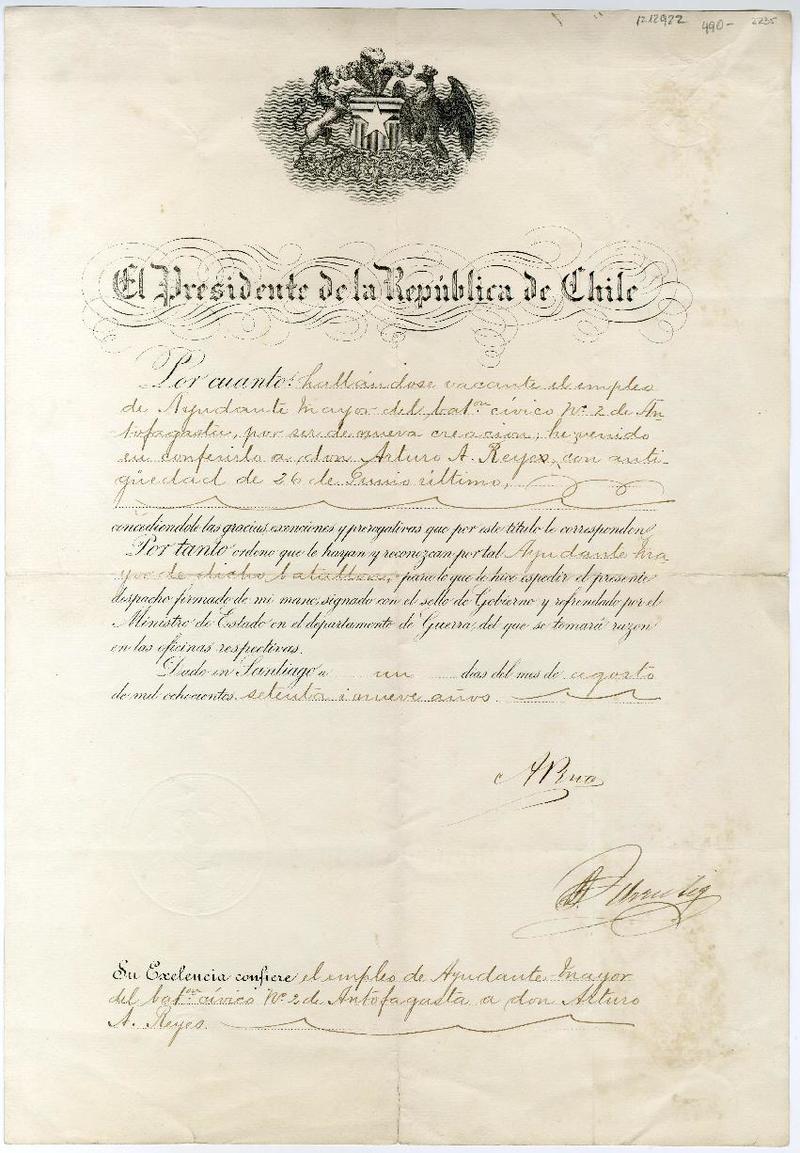 1212922 490- 2235
El Presidente de la República de Chile
Por cuanto: hallándose vacante el empleo
de Ayudante Mayor del bat.on cívico No. 2 de An-
tofagasta, por ser de nueva creacion, he venido
en conferirlo a don Arturo A. Reyes, con anti-
güedad de 26 de Junio último,
concediendole las gracias, exenciones y prerogativas que por este titulo le corresponden.
Por tanto ordeno que le hayan y reconozcan por tal Ayudante Ma-
yor de dicho batallon, para lo que le hice espedir el presente
despacho firmado de mi mano, signado con el sello de Gobierno y refrendado por el
Ministro de Estado en el departamento de Guerra, del que se tomará razon
en las oficinas respectivas.
Dado en Santiago a un dias del mes de agosto
de mil ochocientos setenta i nueve años
Su Exelencia confiere el empleo de Ayudante Mayor
del bat.on cívico No. 2 de Antofagasta a don Arturo
A. Reyes.